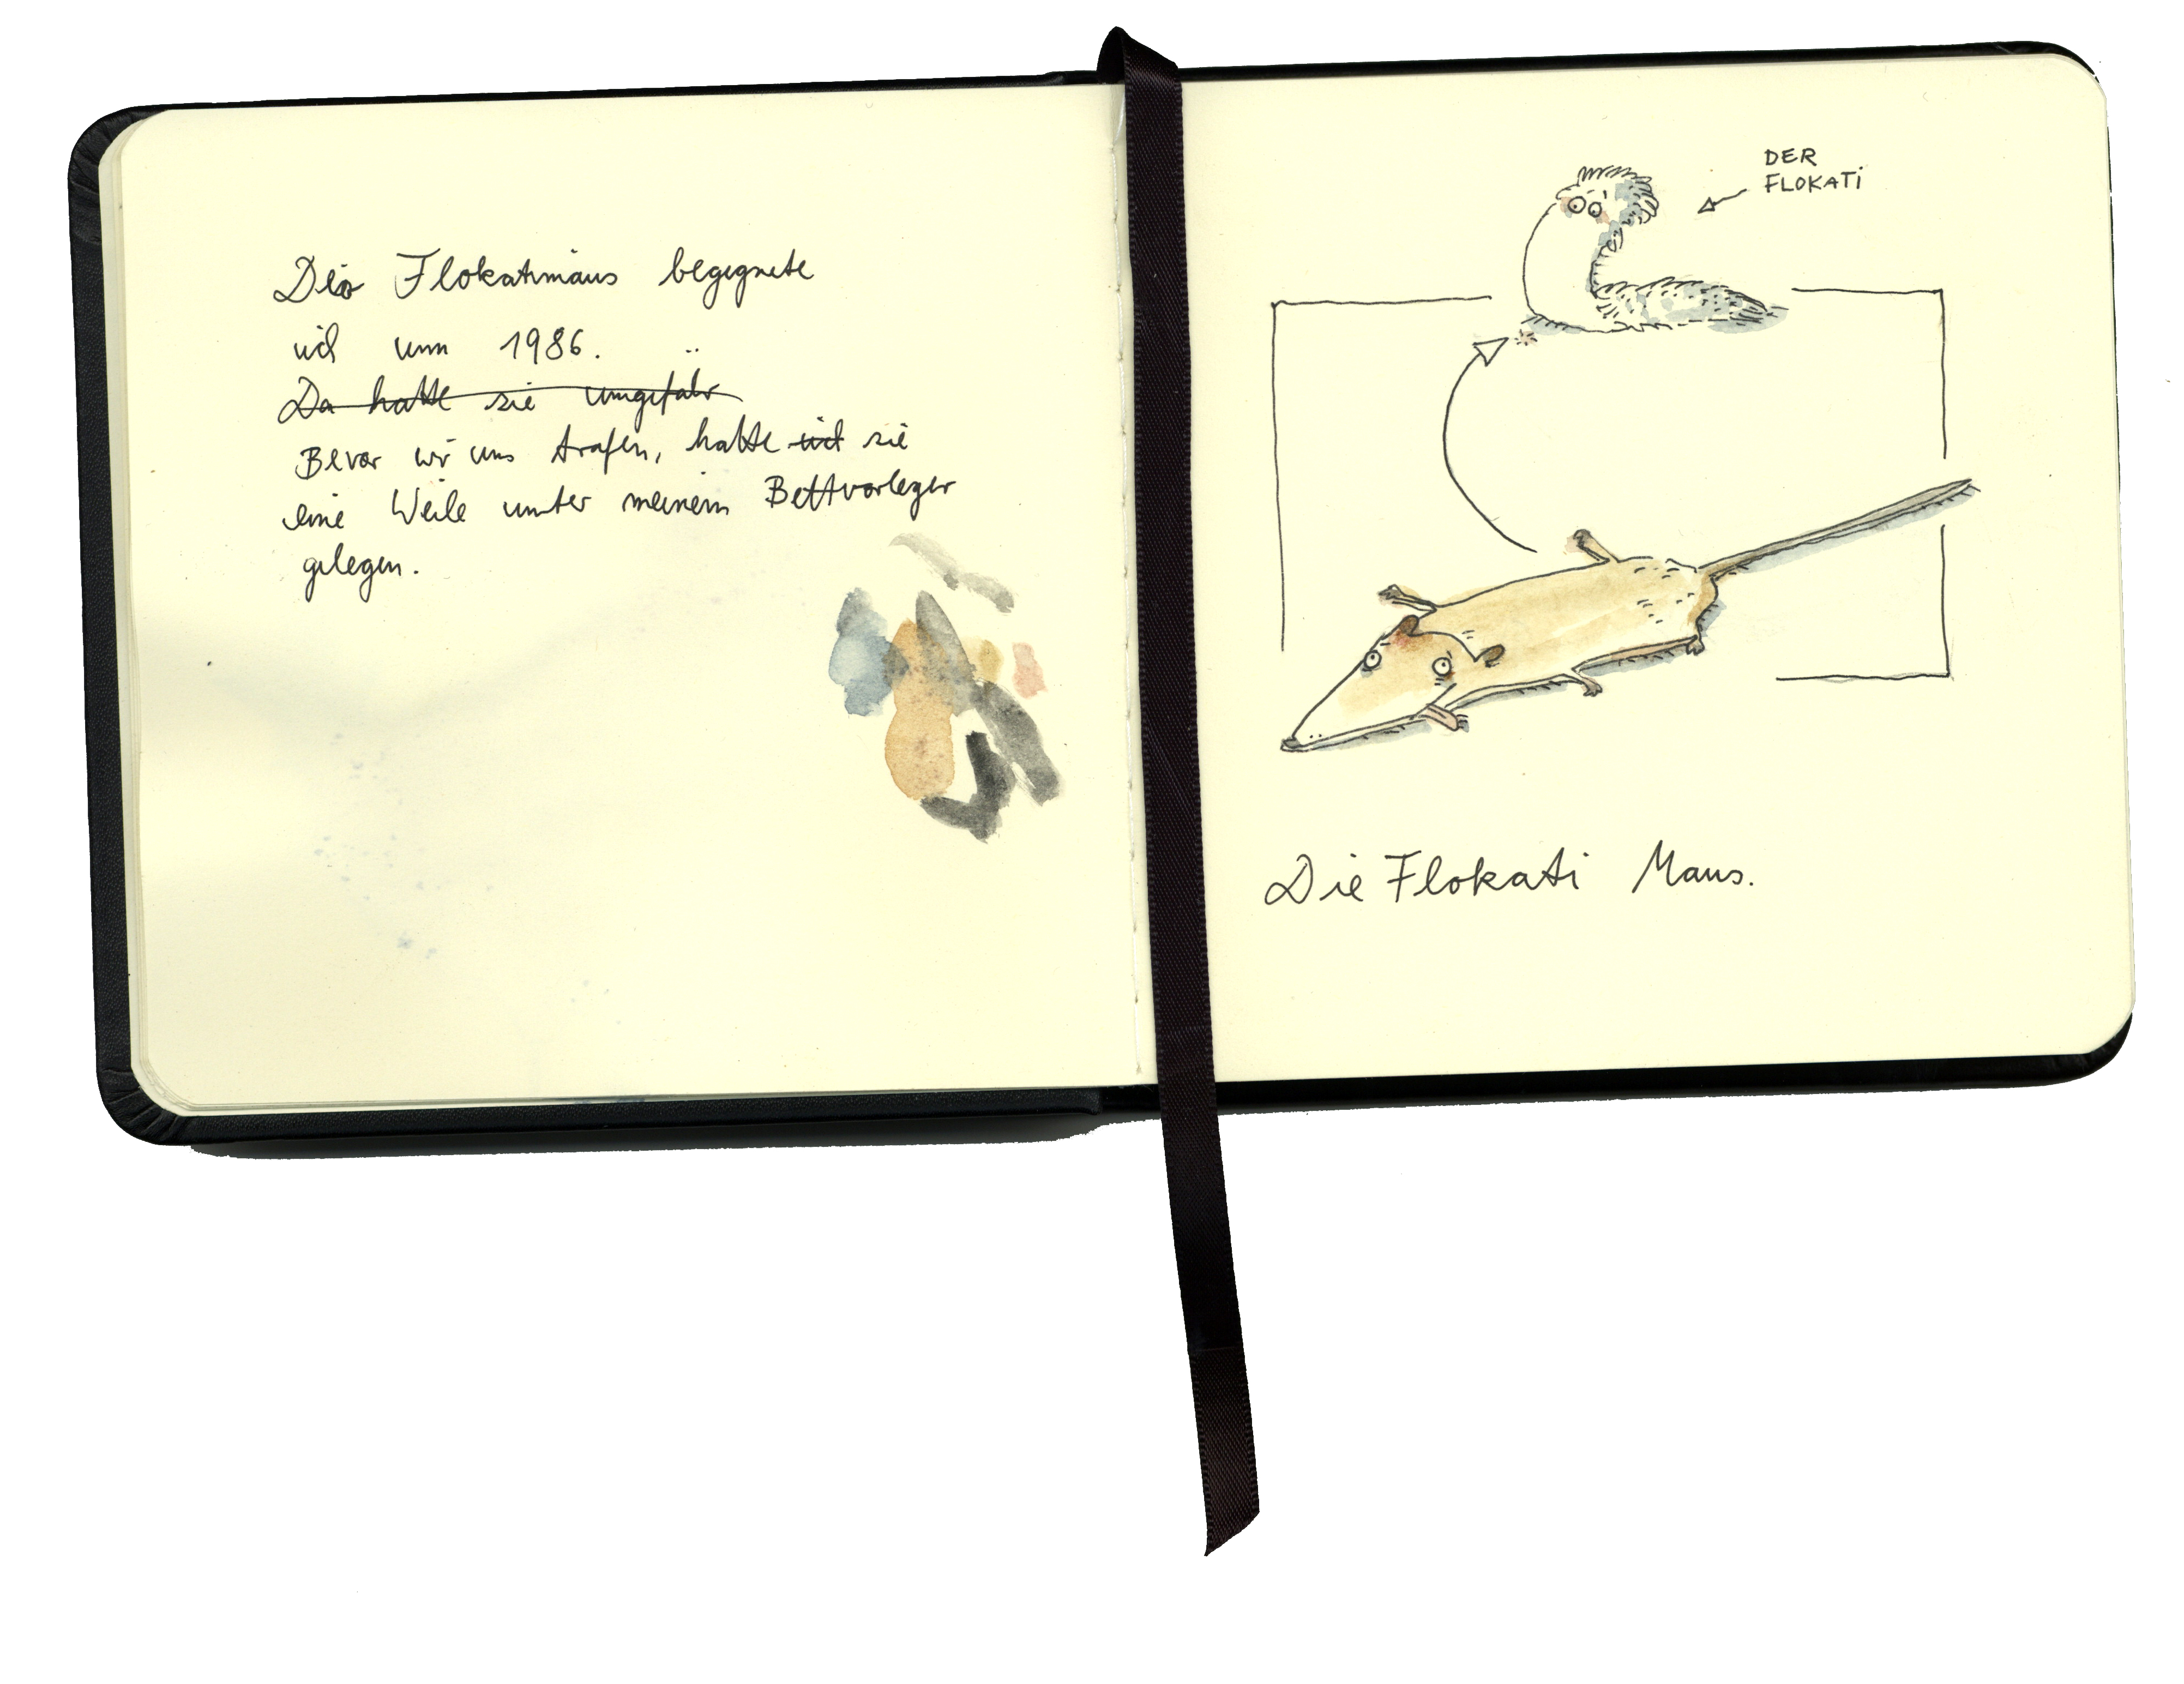 Die Flokatimaus begegnete
ich um 1986.
Da hatte sie ungefähr
Bevor wir uns trafen, hatte ich sie
eine Weile unter meinem Bettvorleger
gelegen.
DER
FLOKATi
Die Flokati Maus.